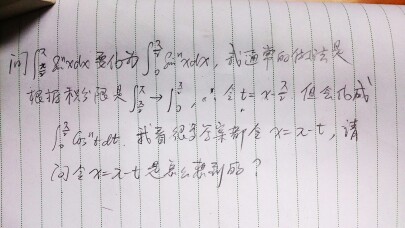 问∫_{π/2}^{π} sinⁿxdx 要化为 ∫_0^{π/2} sinⁿxdx, 我通常的做法是
根据积分限是 ∫_{π/2}^{π} → ∫_0^{π/2}, ∴ 令 t = x - π/2 但会化成
∫_0^{π/2} cosⁿt dt. 我看很多答案都令 x = π - t, 请
问令 x = π - t 是怎么想到的?